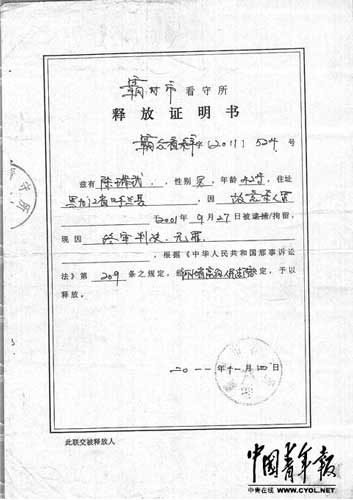 霸州市看守所
释放证明书
霸公看释字[2011]524号
兹有陈瑞武，性别男，年龄 岁，住址
黑龙江省呼兰县，因故意杀人罪
于2001年9月27日被逮捕/拘留，
现因经审判决无罪
，根据《中华人民共和国刑事诉讼
法》第209条之规定，经 决定，予以
释放。
二〇一一年十一月四日
此联交被释放人
中国青年报
中青在线 WWW.CYOL.NET